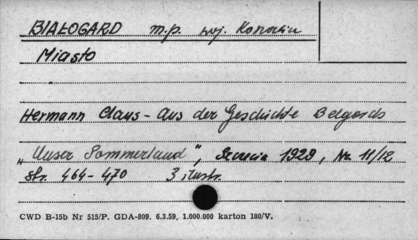 BIAŁOGARD m.p. woj. Koszalin
Miasto
Hermann Claus - Aus der Geschichte Belgards
„Unser Pommerland", Szczecin 1929, Nr. 11/12
str. 464-470 3 ilustr.
CWD B-15b Nr 515/P. GDA-809. 6.3.59. 1.000.000 karton 180/V.